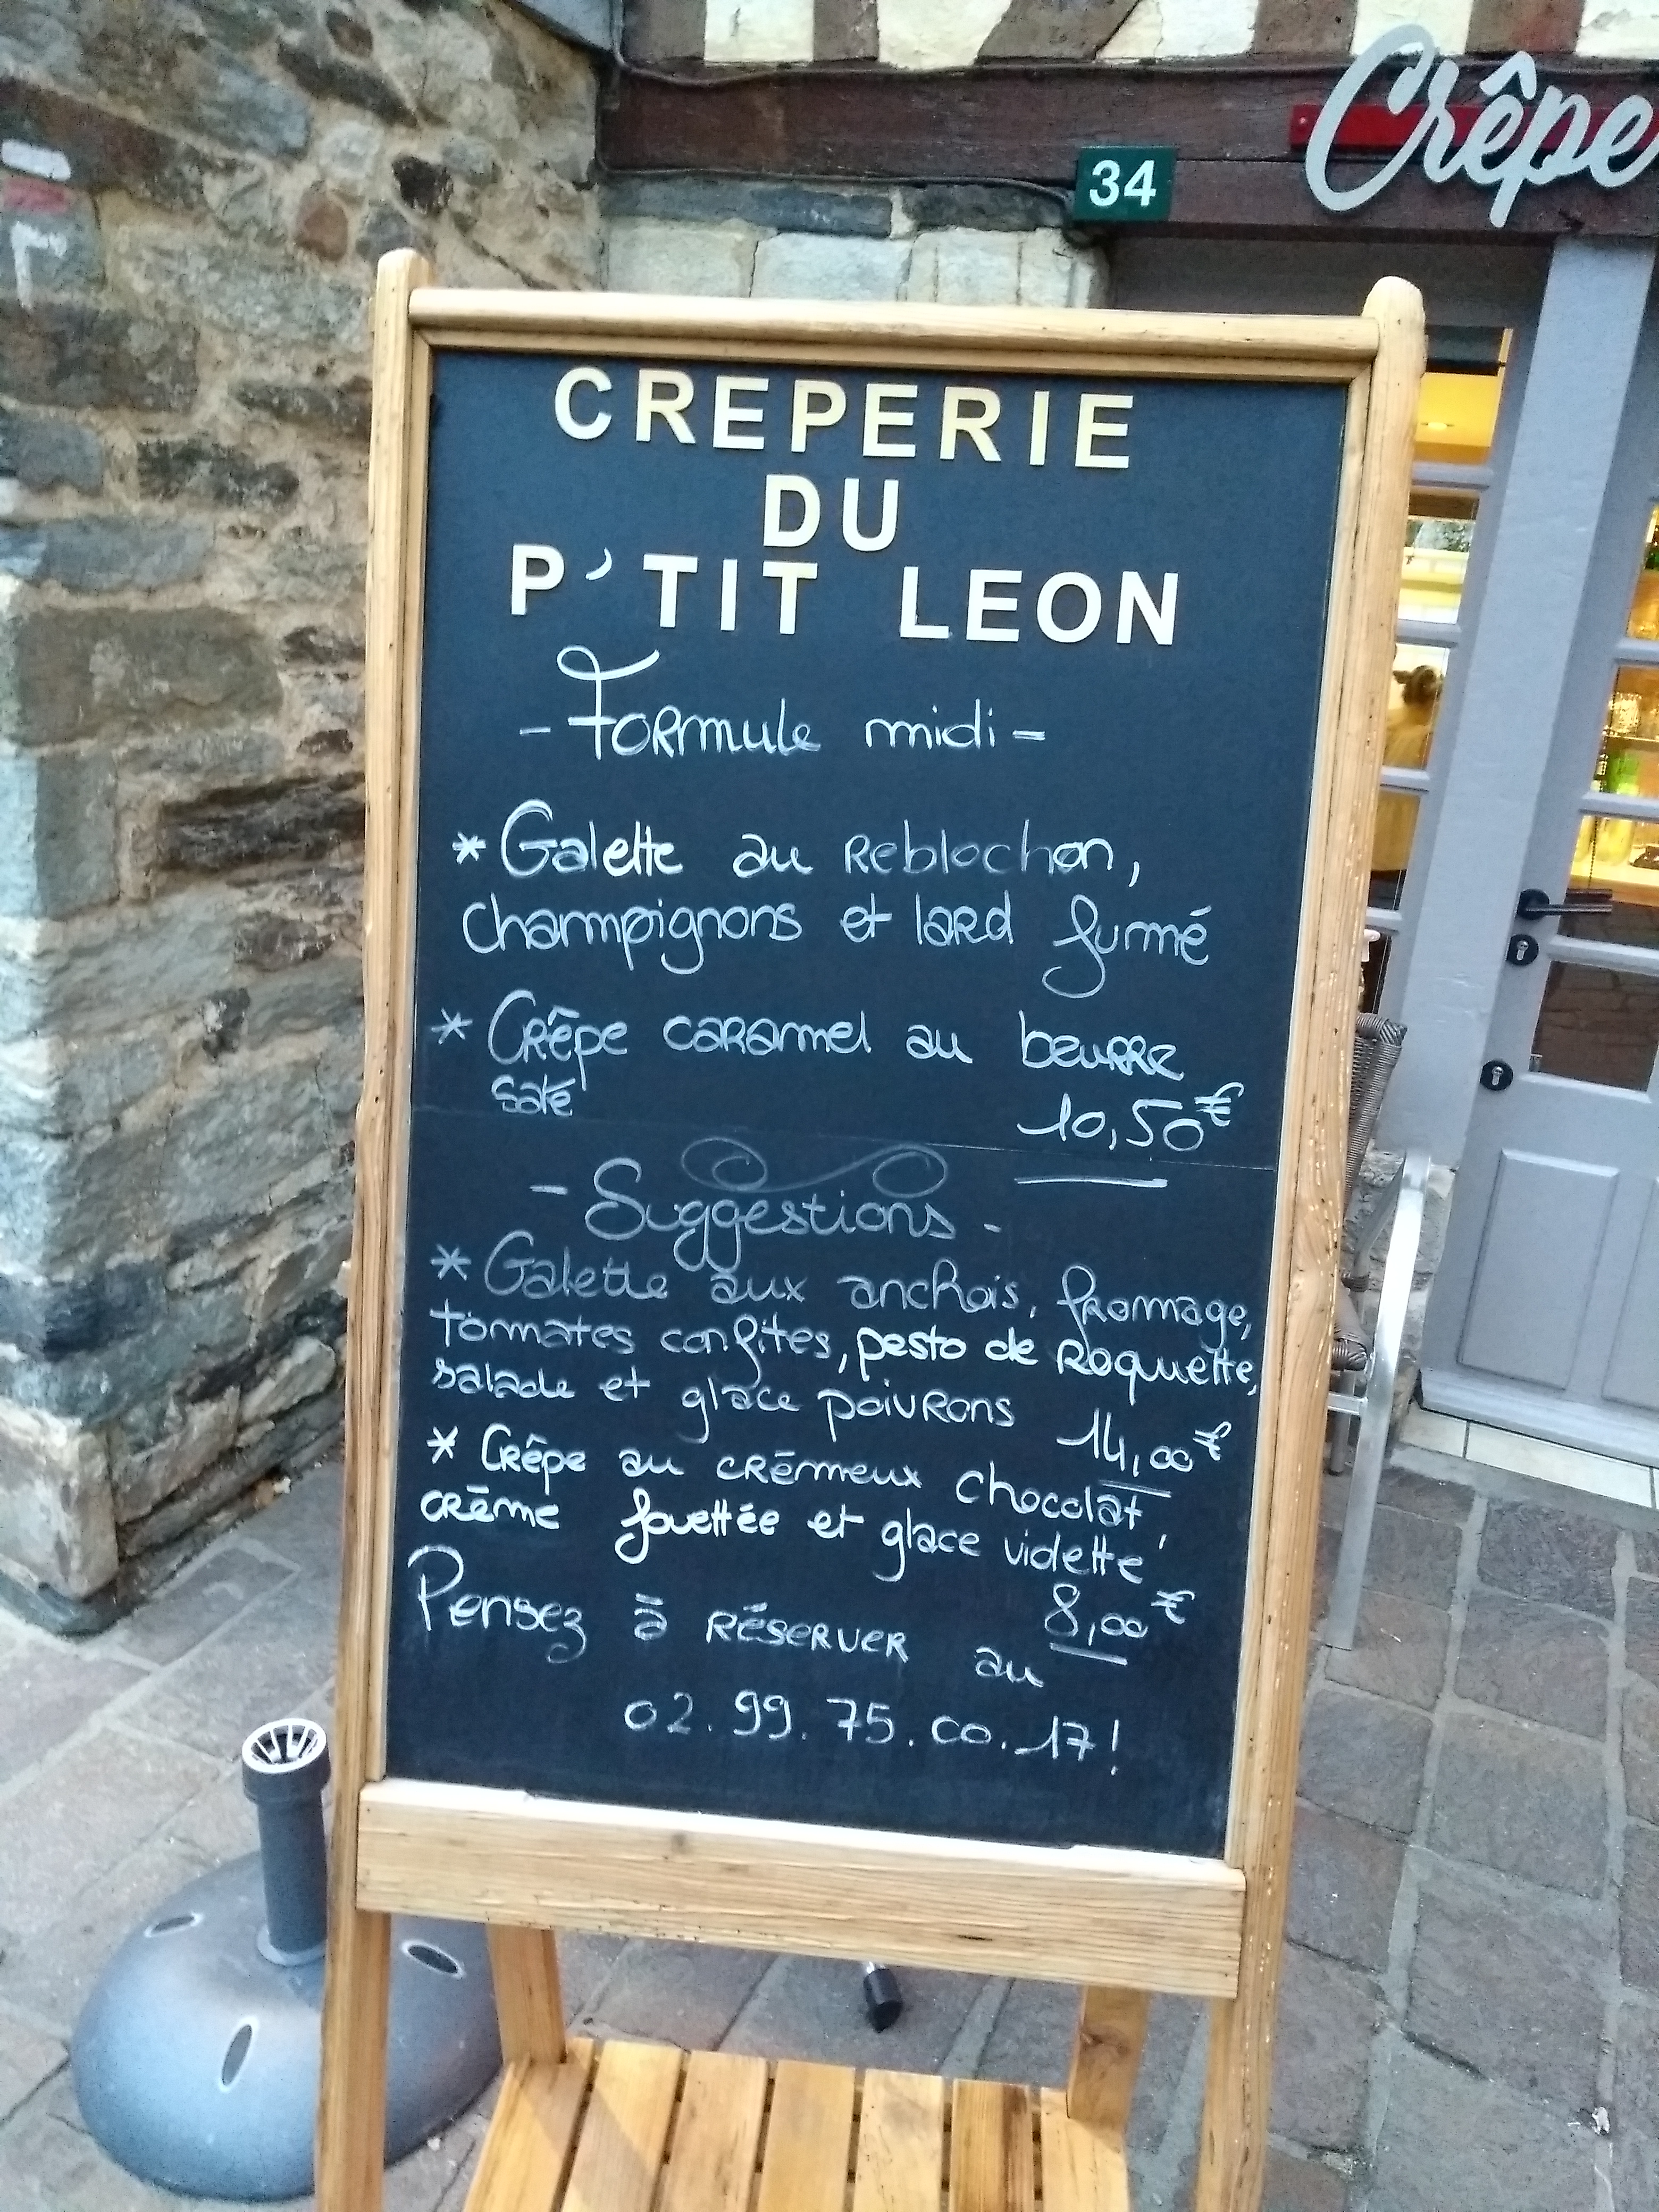 Crêpe
34
CREPERIE
DU
P'TIT LEON
- Formule midi -
* Galette au Reblochon,
champignons et lard fumé
* Crêpe caramel au beurre
salé
10,50€
- Suggestions -
* Galette aux anchois, fromage,
tomates confites, pesto de Roquette,
salade et glace poivrons 14,00€
* Crêpe au crémeux chocolat,
crème fouettée et glace violette
8,00€
Pensez à réserver au
02.99.75.00.17!